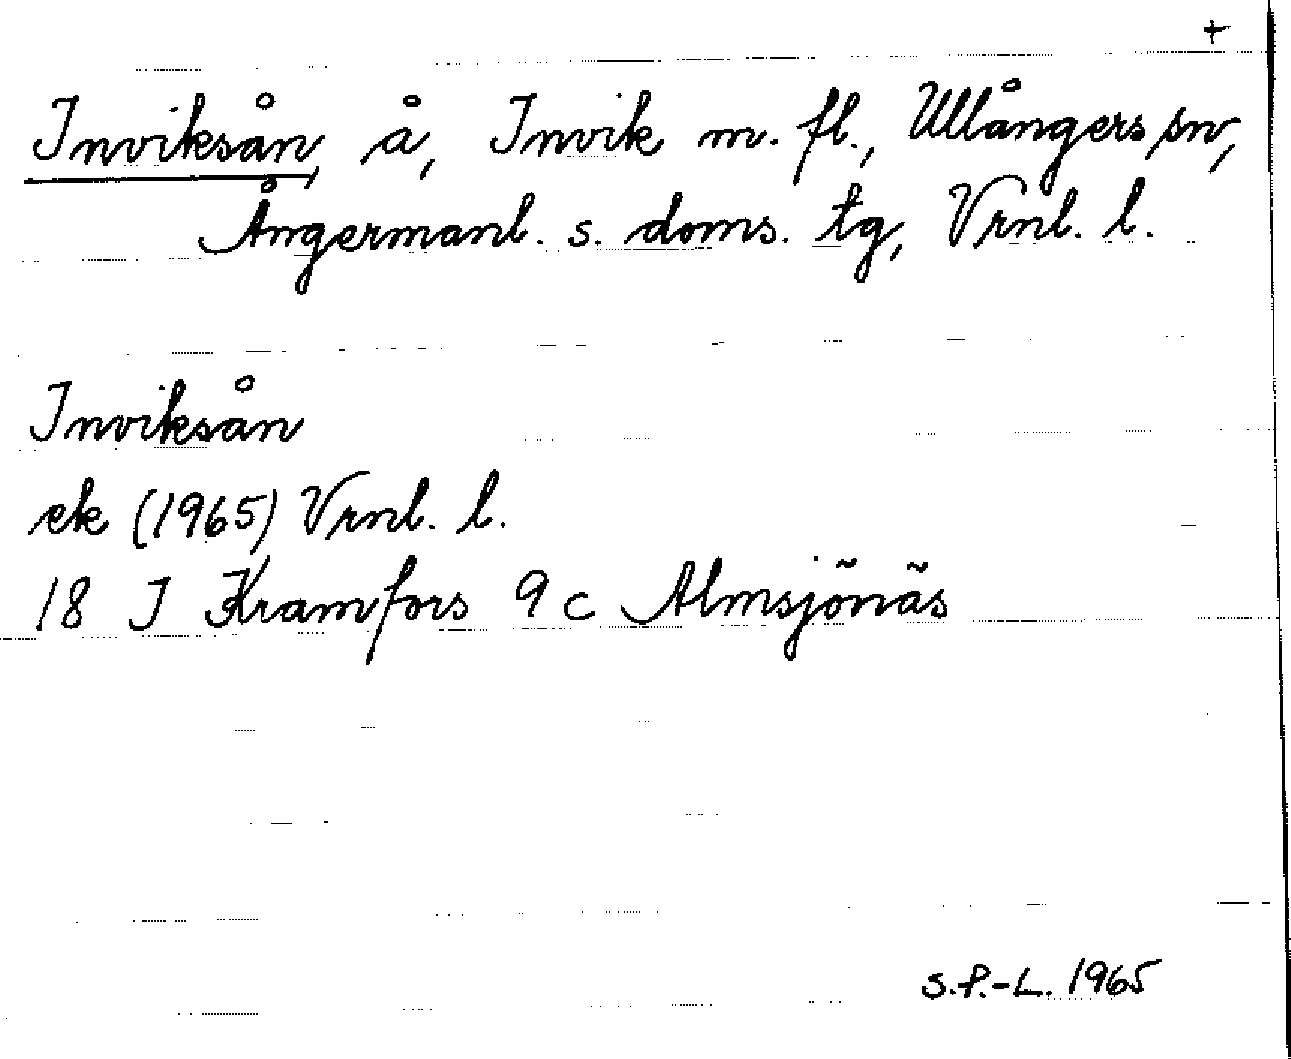 +
Inviksån, å, Invik m. fl., Ullångers sn,
Ångermanl. s. doms. tg, Vrnl. l.
Inviksån
ek (1965) Vrnl. l.
18 J Kramfors 9 c Almsjönäs
S.P.-L. 1965